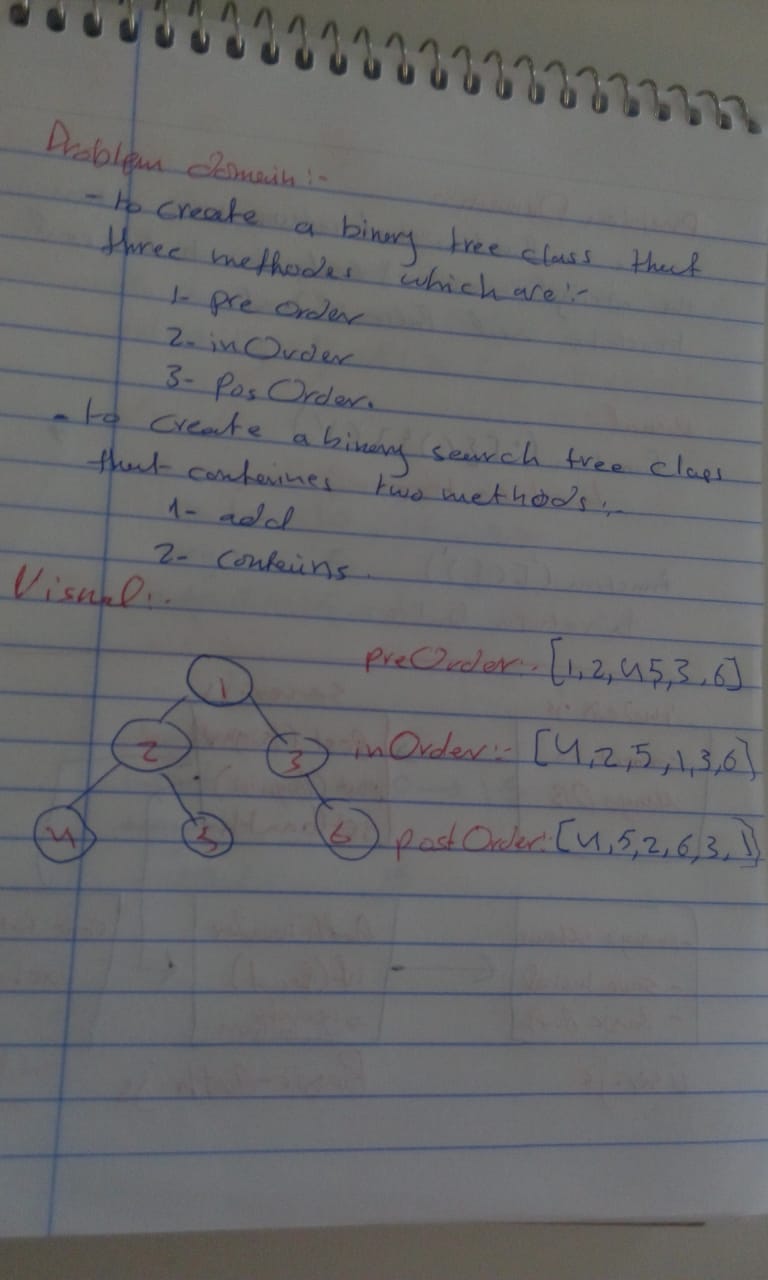 Problem domain:-
- to create a binary tree class that
three methodes which are:-
1- pre order
2- inOrder
3- PosOrder.
- to create a binary search tree class
that containes two methods:-
1- add
2- contains.
Visual:-
preOrder:- [1,2,4,5,3,6]
1
2 3 inOrder:- [4,2,5,1,3,6]
4 5 6 postOrder:- [4,5,2,6,3,1]